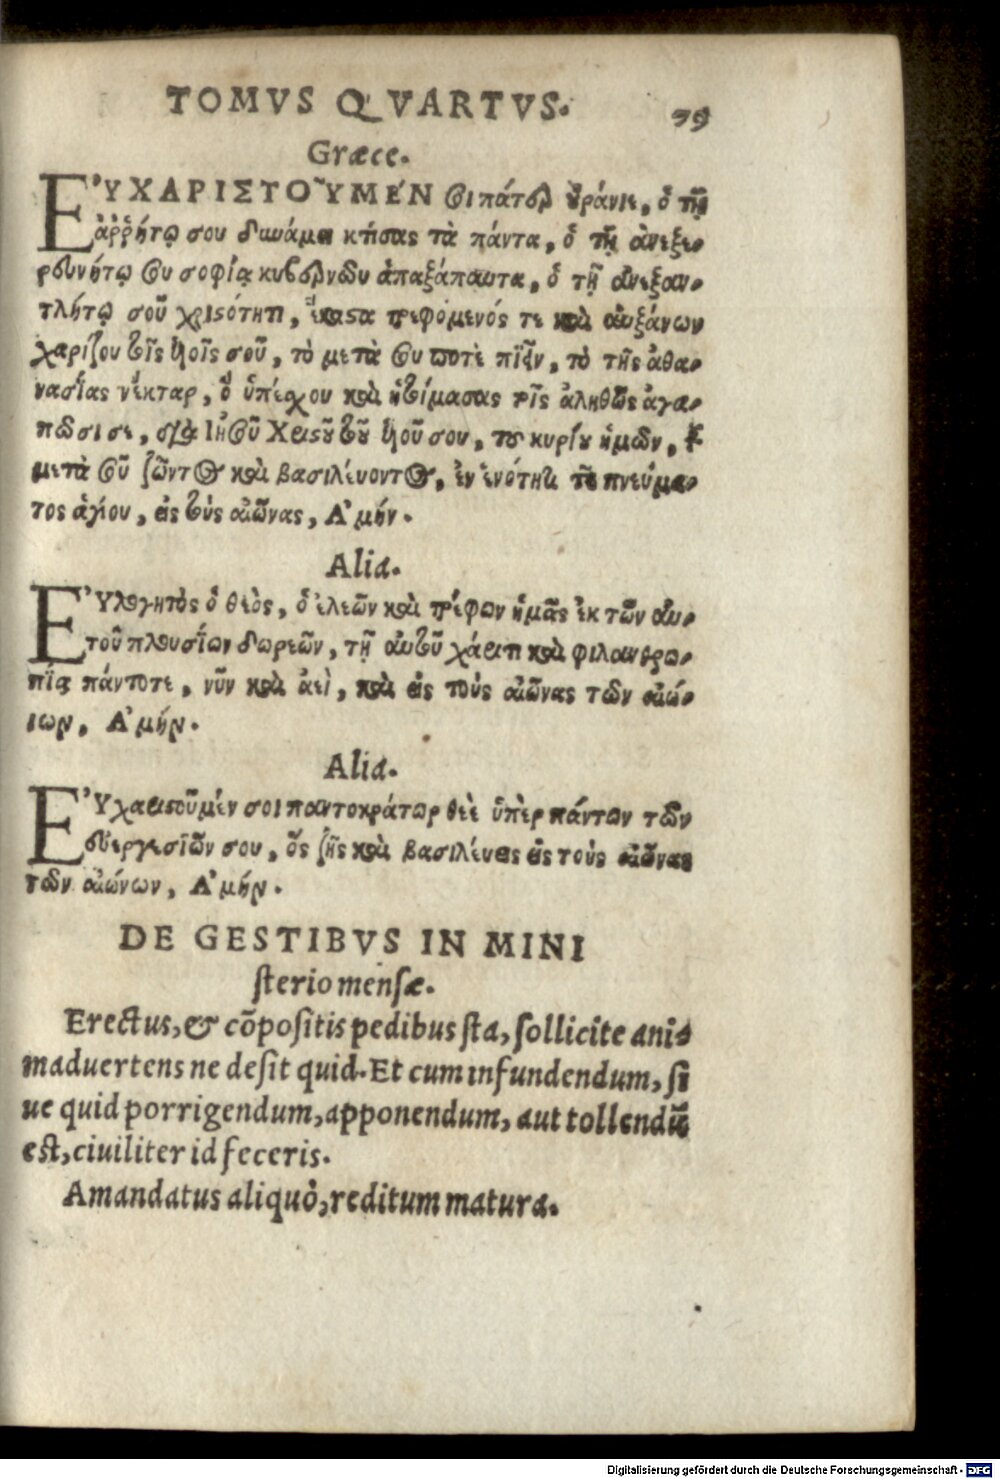 TOMVS QVARTVS. 79
Græce.
ΕΥ̓ΧΑΡΙΣΤΟΥ͂ΜΕΝ σοι πάτερ οὐράνιε, ὁ τῇ
ἀῤῥήτῳ σου δυνάμει κτίσας τὰ πάντα, ὁ τῇ ἀνεξε-
ρευνήτῳ σου σοφίᾳ κυβερνῶν ἁπαξάπαντα, ὁ τῇ ἀνεξαν-
τλήτῳ σοῦ χρηστότητι, ἕκαστα τρεφόμενός τε καὶ αὐξάνων
χαρίζου τοῖς υἱοῖς σοῦ, τὸ μετὰ σου ποτὲ πιεῖν, τὸ τῆς ἀθα-
νασίας νέκταρ, ὃ ὑπέσχου καὶ ἡτοίμασας τοῖς ἀληθῶς ἀγα-
πῶσι σε, διὰ Ἰησοῦ Χριστοῦ τοῦ υἱοῦ σου, τοῦ κυρίου ἡμῶν, τοῦ
μετὰ σοῦ ζῶντος καὶ βασιλεύοντος, ἐν ἑνότητι τοῦ πνεύμα-
τος ἁγίου, εἰς τοὺς αἰῶνας, Ἀμήν.
Alia.
ΕΥ̓λογητὸς ὁ θεὸς, ὁ ἐλεῶν καὶ τρέφων ἡμᾶς ἐκ τῶν αὐ-
τοῦ πλουσίων δωρεῶν, τῇ αὐτοῦ χάριτι καὶ φιλανθρω-
πίᾳ πάντοτε, νῦν καὶ ἀεὶ, καὶ εἰς τοὺς αἰῶνας τῶν αἰώ-
νων, Ἀμήν.
Alia.
ΕΥ̓χαριστοῦμέν σοι παντοκράτωρ θεὲ ὑπὲρ πάντων τῶν
εὐεργεσιῶν σου, ὃς ζῇς καὶ βασιλεύεις εἰς τοὺς αἰῶνας
τῶν αἰώνων, Ἀμήν.
DE GESTIBVS IN MINI
sterio mensæ.
Erectus, & cōpositis pedibus sta, sollicite ani-
maduertens ne desit quid. Et cum infundendum, si
ue quid porrigendum, apponendum, aut tollendū
est, ciuiliter id feceris.
Amandatus aliquò, reditum matura.
Digitalisierung gefördert durch die Deutsche Forschungsgemeinschaft - DFG